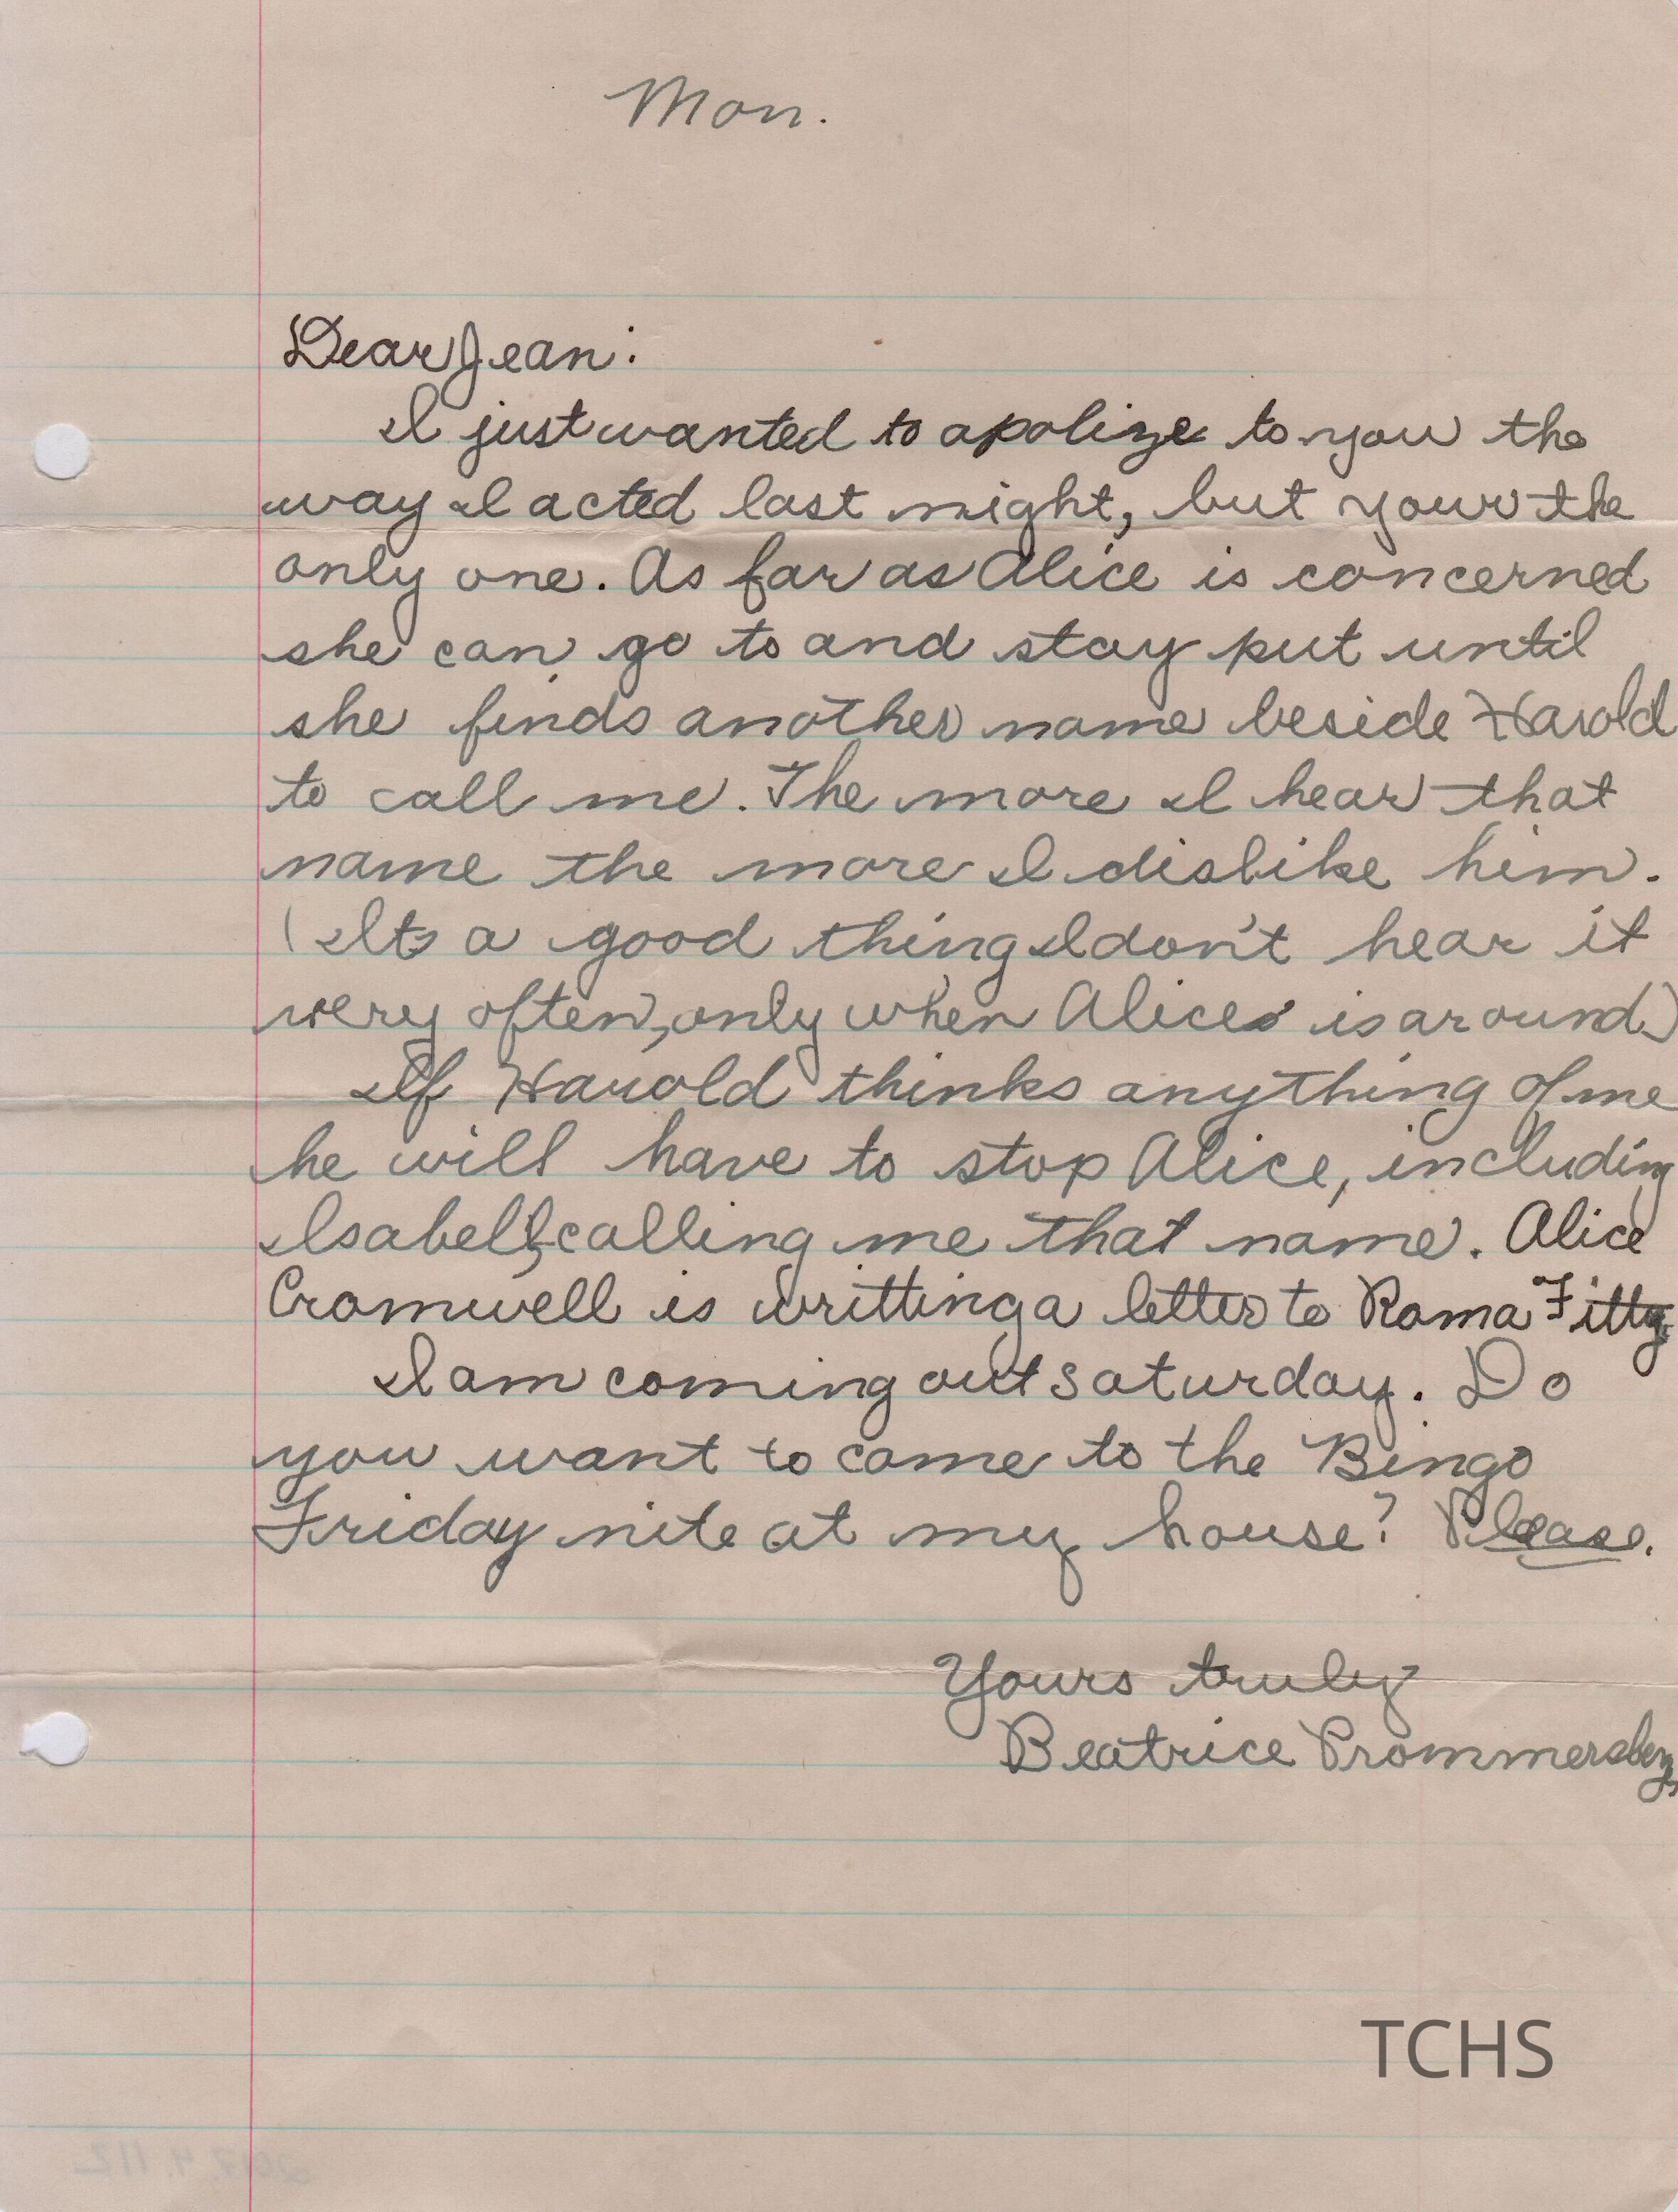 Mon.
Dear Jean:
I just wanted to apolize to you the
way I acted last night, but your the
only one. As far as Alice is concerned
she can go to and stay put until
she finds another name beside Harold
to call me. The more I hear that
name the more I dislike him.
(Its a good thing I don't hear it
very often, only when Alice is around)
If Harold thinks anything of me
he will have to stop Alice, including
Isabell, calling me that name. Alice
Cromwell is writting a letter to Roma
I am coming out Saturday. Do
you want to come to the Bingo
Friday nite at my house? Please.
Yours truly
Beatrice
TCHS